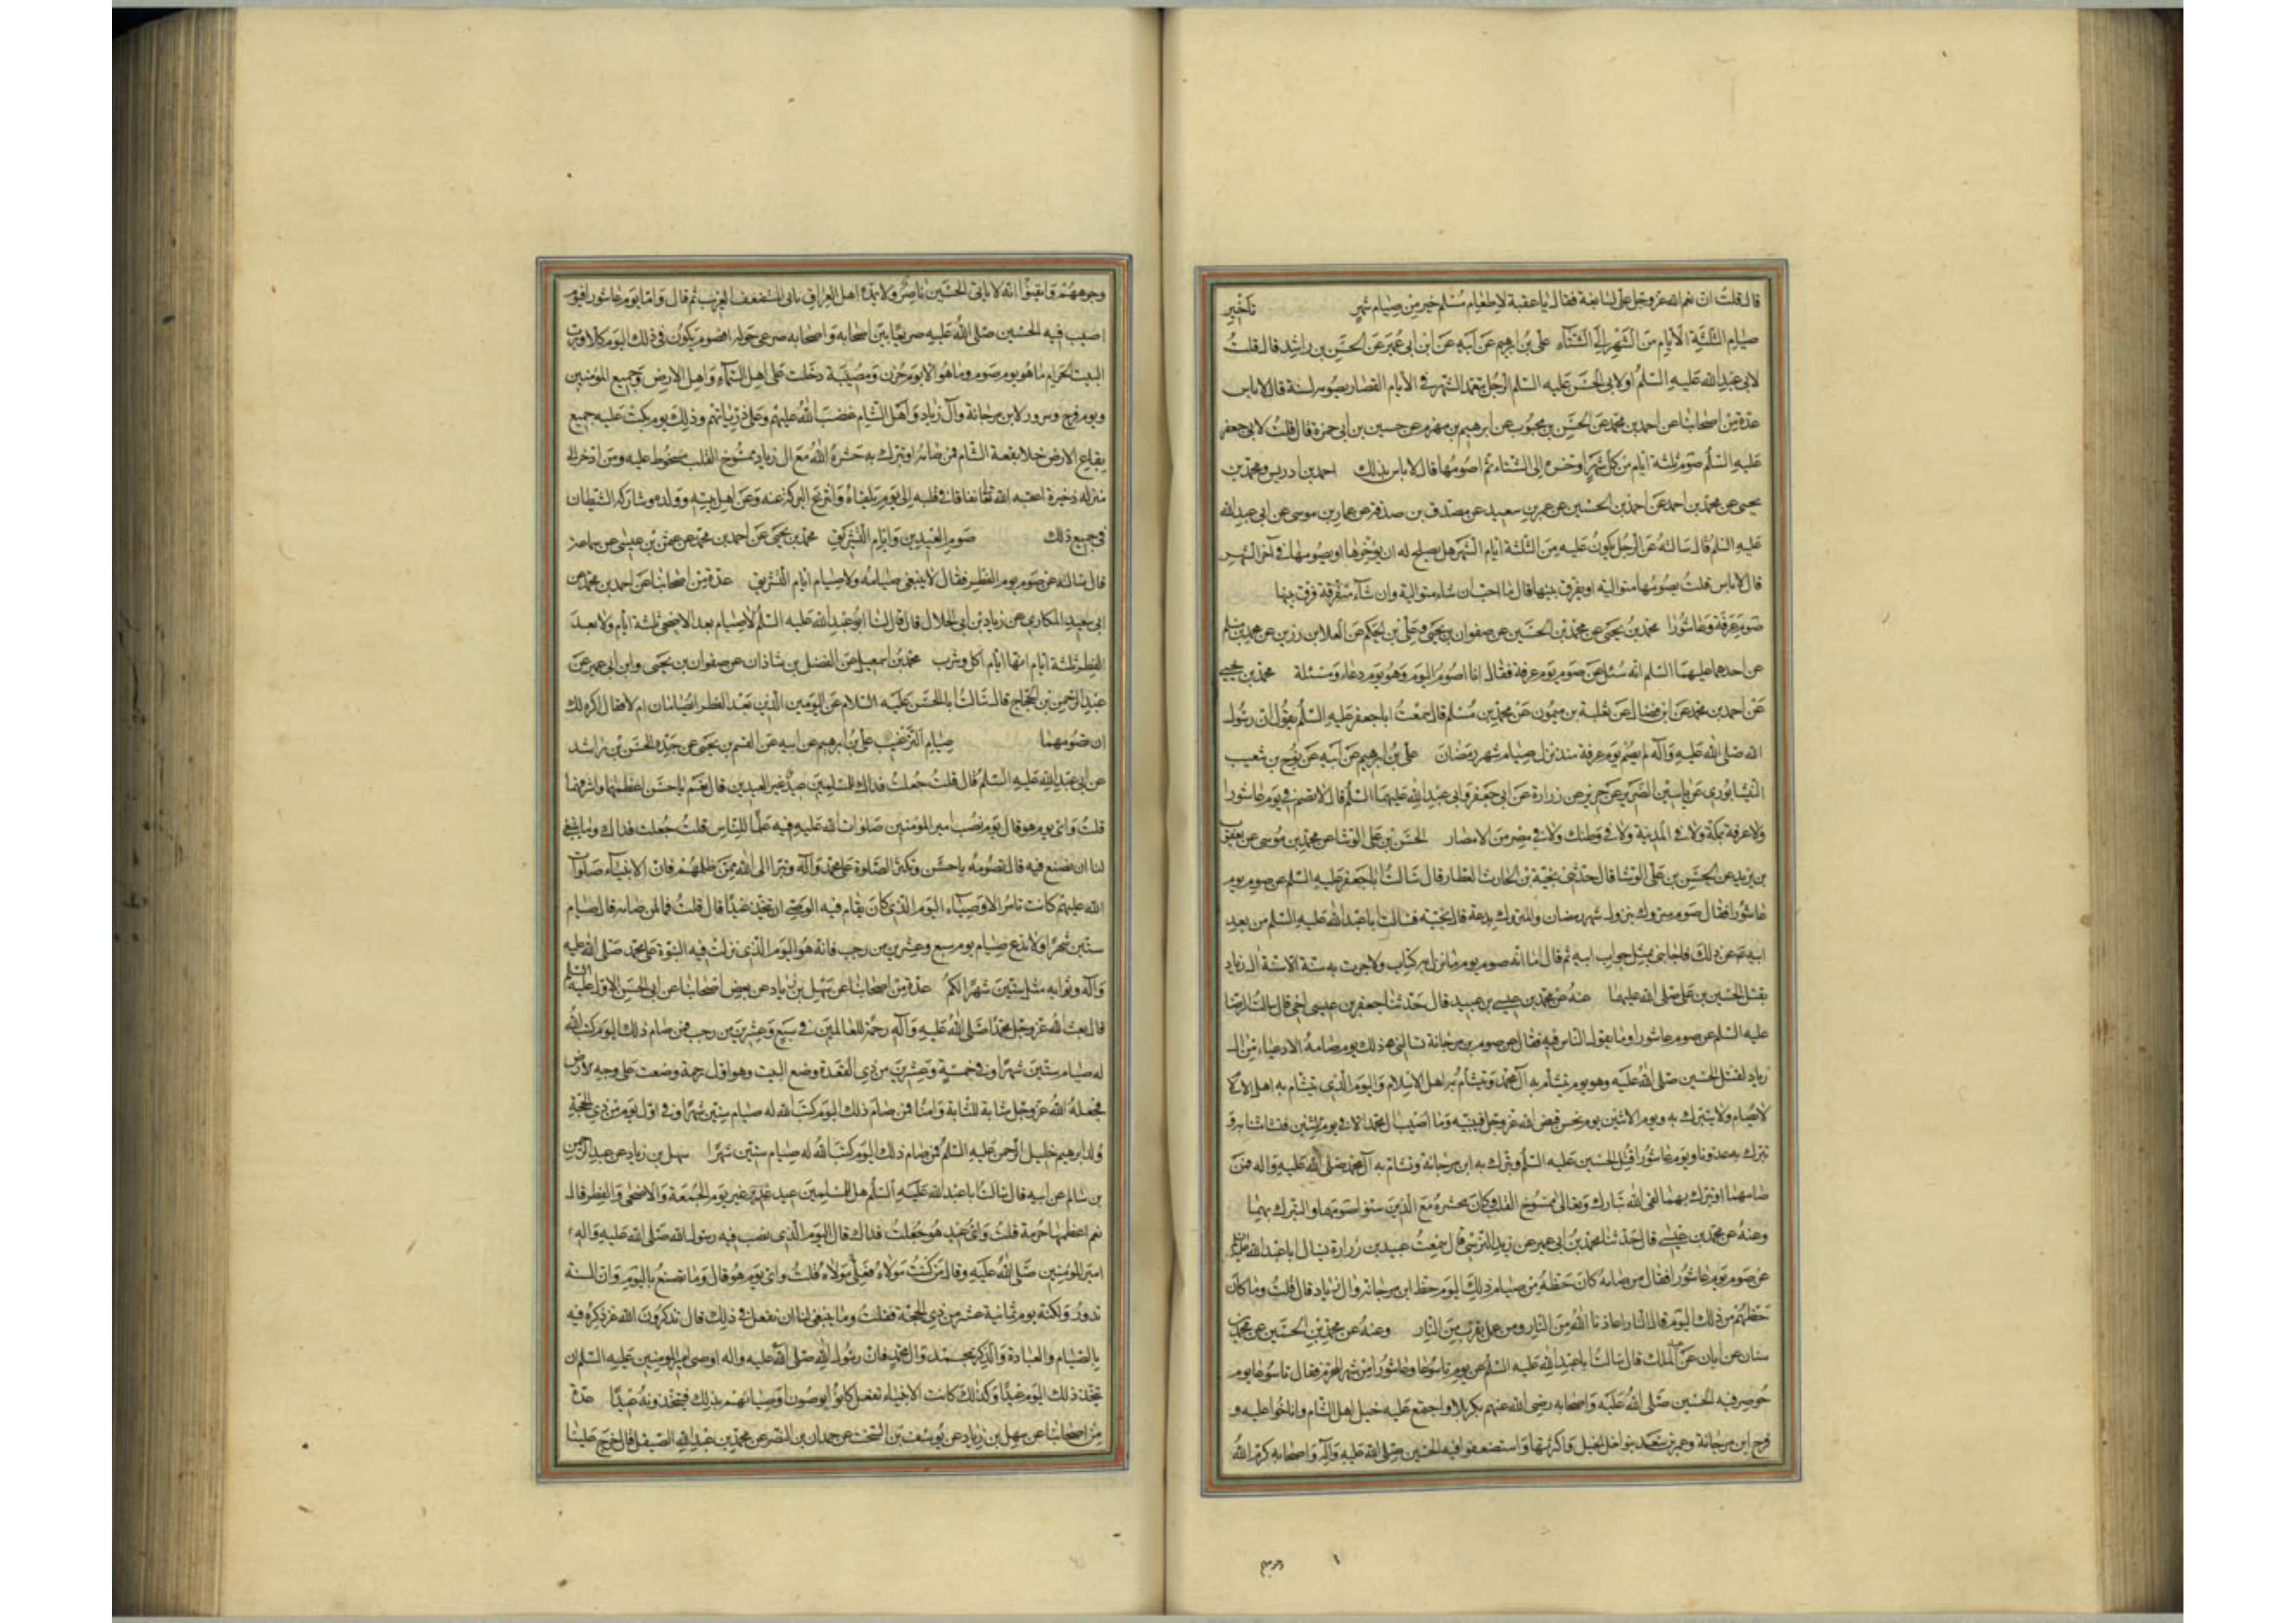 قال قلت ان نعم الله عز وجل علی سابغة فقال یا عقبة لاطعام مسلم خیر من صیام شهر تاخیر
صیام الثلثة الایام من الشهر الی الشتاء علی بن ابرهیم عن ابیه عن ابن ابی عمیر عن الحسن بن راشد قال قلت
لابی عبد الله علیه السلم او لابی الحسن علیه السلم الرجل یتعمد الشهر فی الایام القصار یصومه لسنة قال لا باس
عدة من اصحابنا عن احمد بن محمد عن الحسن بن محبوب عن ابرهیم بن مهزم عن حسین بن ابی حمزة قال قلت لابی جعفر
علیه السلم صوم ثلثة ایام من کل شهر اوخره الی الشتاء ثم اصومها قال لا باس بذلک احمد بن ادریس ومحمد بن
یحیی عن محمد بن احمد عن احمد بن الحسین عن عمر بن سعید عن مصدق بن صدقة عن عمار بن موسی عن ابی عبد الله
علیه السلم قال سالته عن الرجل یکون علیه من الثلثة ایام الشهر هل یصلح له ان یؤخرها او یصومها فی آخر الشهر
قال لا باس قلت یصومها متوالیة او یفرق بینها قال ما احب ان شاء متوالیة وان شاء متفرقة فرق بینها
صوم عرفة وعاشورا محمد بن یحیی عن محمد بن الحسین عن صفوان بن یحیی وعلی بن الحکم عن العلا بن رزین عن محمد بن مسلم
عن احدهما علیهما السلم انه سئل عن صوم یوم عرفة فقال انا اصوم الیوم وهو یوم دعاء ومسئلة محمد بن یحیی
عن احمد بن محمد عن ابن فضال عن ثعلبة بن میمون عن محمد بن مسلم قال سمعت ابا جعفر علیه السلم یقول ان رسول
الله صلی الله علیه وآله لم یصم یوم عرفة منذ نزل صیام شهر رمضان علی بن ابرهیم عن ابیه عن نوح بن شعیب
النیشابوری عن یاسین الضریر عن حریز عن زرارة عن ابی جعفر وابی عبد الله علیهما السلم قال لا تصم فی یوم عاشورا
ولا عرفة بمکة ولا فی المدینة ولا فی وطنک ولا فی مصر من الامصار الحسن بن علی الوشا عن محمد بن موسی عن یعقوب
بن یزید عن الحسن بن علی الوشا قال حدثنی نجیة بن الحارث العطار قال سالت ابا جعفر علیه السلم عن صوم یوم
عاشورا فقال صوم متروک بنزول شهر رمضان والمتروک بدعة قال نجیة فسالت ابا عبد الله علیه السلم من بعد
ابیه عن ذلک فاجابنی بمثل جواب ابیه ثم قال اما انه صوم یوم ما نزل به کتاب ولا جرت به سنة الا سنة آل زیاد
بقتل الحسین بن علی صلی الله علیهما عنه عن محمد بن عیسی بن عبید قال حدثنا جعفر بن عیسی اخی قال سالت الرضا
علیه السلم عن صوم عاشورا وما یقول الناس فیه فقال عن صوم بن مرجانة تسالنی ذلک یوم صامه الادعیاء من آل
زیاد لقتل الحسین صلی الله علیه وهو یوم یتشأم به آل محمد ویتشأم به اهل الاسلام والیوم الذی یتشأم به اهل الاسلام
لا یصام ولا یتبرک به ویوم الاثنین یوم نحس قبض الله عز وجل فیه نبیه وما اصیب آل محمد الا فی یوم الاثنین فتشأمنا به و
تبرک به عدونا ویوم عاشورا قتل الحسین علیه السلم وتبرک به ابن مرجانة وتشام به آل محمد صلی الله علیه واله فمن
صامهما او تبرک بهما لقی الله تبارک وتعالی ممسوخ القلب وکان محشره مع الذین سنوا صومهما والتبرک بهما
وعنه عن محمد بن عیسی قال حدثنا محمد بن ابی عمیر عن زید النرسی قال سمعت عبید بن زرارة یسال ابا عبد الله علیه السلم
عن صوم یوم عاشورا فقال من صامه کان حظه من صیام ذلک الیوم حظ ابن مرجانة وال زیاد قال قلت وما کان
حظهم من ذلک الیوم قال النار اعاذنا الله من النار ومن عمل یقرب من النار وعنه عن محمد بن الحسین عن محمد بن
سنان عن ابان عن الملک قال سالت ابا عبد الله علیه السلم عن یوم تاسوعا وعاشورا من شهر المحرم فقال تاسوعا یوم
حوصر فیه الحسین صلی الله علیه واصحابه رضی الله عنهم بکربلا واجتمع علیه خیل اهل الشام واناخوا علیه و
فرح ابن مرجانة وعمر بن سعد بتوافر الخیل وکثرتها واستضعفوا فیه الحسین صلی الله علیه وآله واصحابه کرم الله
وجوههم وایقنوا انه لا یاتی الحسین ناصر ولا یمده اهل العراق بابی المستضعف الغریب ثم قال واما یوم عاشورا فیوم
اصیب فیه الحسین صلی الله علیه صریعا بین اصحابه واصحابه صرعی حوله افصوم یکون فی ذلک الیوم کلا ورب
البیت الحرام ما هو یوم صوم وما هو الا یوم حزن ومصیبة دخلت علی اهل السماء واهل الارض وجمیع المؤمنین
ویوم فرح وسرور لابن مرجانة وآل زیاد واهل الشام غضب الله علیهم وعلی ذریاتهم وذلک یوم بکت علیه جمیع
بقاع الارض خلا بقعة الشام فمن صامه او تبرک به حشره الله مع ال زیاد ممسوخ القلب سخوط علیه ومن ادخر الی
منزله ذخیرة اعقبه الله تعالی نفاقا فی قلبه الی یوم یلقاه وانتزع البرکة عنه وعن اهل بیته وولده وشارکه الشیطان
فی جمیع ذلک صوم العیدین وایام التشریق محمد بن یحیی عن احمد بن محمد عن عثمن بن عیسی عن سماعة
قال سالته عن صوم یوم الفطر فقال لا ینبغی صیامه ولا صیام ایام التشریق عدة من اصحابنا عن احمد بن محمد عن
ابی سعید المکاری عن زیاد بن ابی الحلال قال قال لنا ابو عبد الله علیه السلم لا صیام بعد الاضحی ثلثة ایام ولا بعد
الفطر ثلثة ایام انها ایام اکل وشرب محمد بن اسمعیل عن الفضل بن شاذان عن صفوان بن یحیی وابن ابی عمیر عن
عبد الرحمن بن الحجاج قال سالت ابا الحسن علیه السلام عن الیومین الذین بعد الفطر ایصامان ام لا فقال اکره لک
ان تصومهما صیام الترغیب علی بن ابرهیم عن ابیه عن القسم بن یحیی عن جده الحسن بن راشد
عن ابی عبد الله علیه السلم قال قلت جعلت فداک للمسلمین عید غیر العیدین قال نعم یا حسن اعظمهما واشرفهما
قلت وای یوم هو قال یوم نصب امیر المؤمنین صلوات الله علیه وفیه علما للناس قلت جعلت فداک وما ینبغی
لنا ان نصنع فیه قال تصومه یا حسن وتکثر الصلوة علی محمد وآله وتبرا الی الله ممن ظلمهم فان الانبیاء صلوات
الله علیهم کانت تامر الاوصیاء الیوم الذی کان یقام فیه الوصی ان یتخذ عیدا قال قلت فما لمن صامه قال صیام
ستین شهرا ولا تدع صیام یوم سبع وعشرین من رجب فانه هو الیوم الذی نزلت فیه النبوة علی محمد صلی الله علیه
وآله وثوابه مثل ستین شهرا لکم عدة من اصحابنا عن سهل بن زیاد عن بعض اصحابنا عن ابی الحسن الاول علیه السلم
قال بعث الله عز وجل محمدا صلی الله علیه وآله رحمة للعالمین فی سبع وعشرین من رجب فمن صام ذلک الیوم کتب الله
له صیام ستین شهرا وفی خمسة وعشرین من ذی القعدة وضع البیت وهو اول رحمة وضعت علی وجه الارض
فجعله الله عز وجل مثابة للناس وامنا فمن صام ذلک الیوم کتب الله له صیام ستین شهرا وفی اول یوم من ذی الحجة
ولد ابرهیم خلیل الرحمن علیه السلم فمن صام ذلک الیوم کتب الله له صیام ستین شهرا سهل بن زیاد عن عبد الرحمن
بن سالم عن ابیه قال سالت ابا عبد الله علیه السلم هل للمسلمین عید غیر یوم الجمعة والاضحی والفطر قال
نعم اعظمها حرمة قلت وای عید هو جعلت فداک قال الیوم الذی نصب فیه رسول الله صلی الله علیه واله
امیر المؤمنین صلی الله علیه وقال من کنت مولاه فعلی مولاه قلت وای یوم هو قال وما تصنع بالیوم وان السنة
تدور ولکنه یوم ثمانیة عشر من ذی الحجة فقلت وما ینبغی لنا ان نفعل فی ذلک قال تذکرون الله عز ذکره فیه
بالصیام والعبادة والذکر لمحمد وال محمد فان رسول الله صلی الله علیه واله اوصی امیر المؤمنین علیه السلم ان
یتخذ ذلک الیوم عیدا وکذلک کانت الانبیاء تفعل کانوا یوصون اوصیائهم بذلک فیتخذونه عیدا عدة
من اصحابنا عن سهل بن زیاد عن یوسف بن السخت عن حمدان بن النضر عن محمد بن عبد الله الصیقل قال خرج علینا